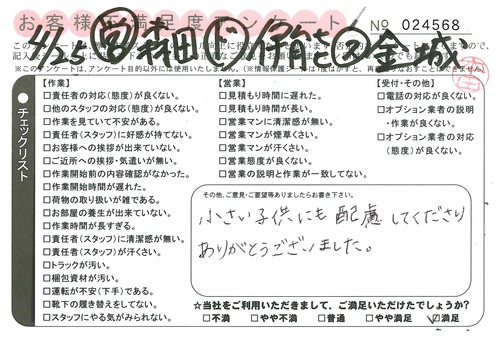 お客様不満足度アンケート
No 024568
4/25 宮 森田 ド 伊能 ア 金城
チェックリスト
【作業】
□責任者の対応(態度)が良くない。
□他のスタッフの対応(態度)が良くない。
□作業を見ていて不安がある。
□責任者(スタッフ)に好感が持てない。
□お客様への挨拶が出来ていない。
□ご近所への挨拶・気遣いが無い。
□作業開始前の内容確認がなかった。
□作業開始時間が遅れた。
□荷物の取り扱いが雑である。
□お部屋の養生が出来ていない。
□作業時間が長すぎる。
□責任者(スタッフ)に清潔感が無い。
□責任者(スタッフ)が汗くさい。
□トラックが汚い。
□梱包資材が汚い。
□運転が不安(下手)である。
□靴下の履き替えをしてない。
□スタッフにやる気がみられない。
【営業】
□見積もり時間に遅れた。
□見積もり時間が長い。
□営業マンに清潔感が無い。
□営業マンが煙草くさい。
□営業マンが汗くさい。
□営業態度が良くない。
□営業の説明と作業が一致してない。
【受付・その他】
□電話の対応が良くない。
□オプション業者の説明・作業が良くない。
□オプション業者の対応(態度)が良くない。
その他、ご意見・ご要望等ありましたらお書き下さい。
小さい子供にも配慮してくださり
ありがとうございました。
☆当社をご利用いただきまして、ご満足いただけたでしょうか?
□不満 □やや不満 □普通 □やや満足 ☑満足